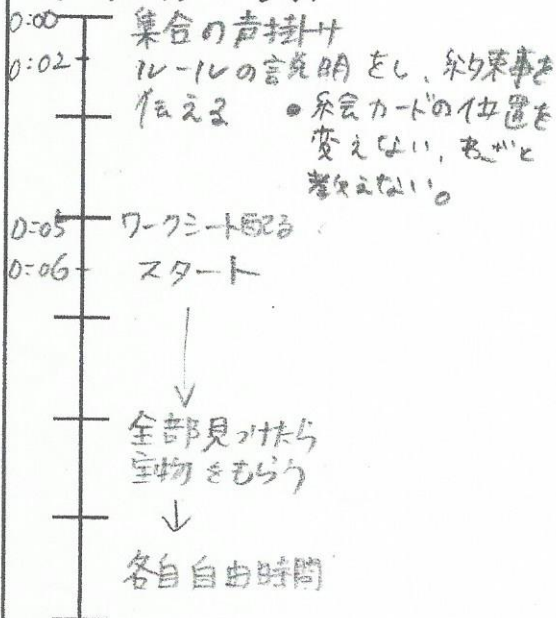 0:00 集合の声掛け
0:02 ルールの説明をし、約束事を
伝える ・絵カードの位置を
変えない、わざと
教えない。
0:05 ワークシート配る
0:06 スタート
↓
全部見つけたら
宝物をもらう
↓
各自自由時間